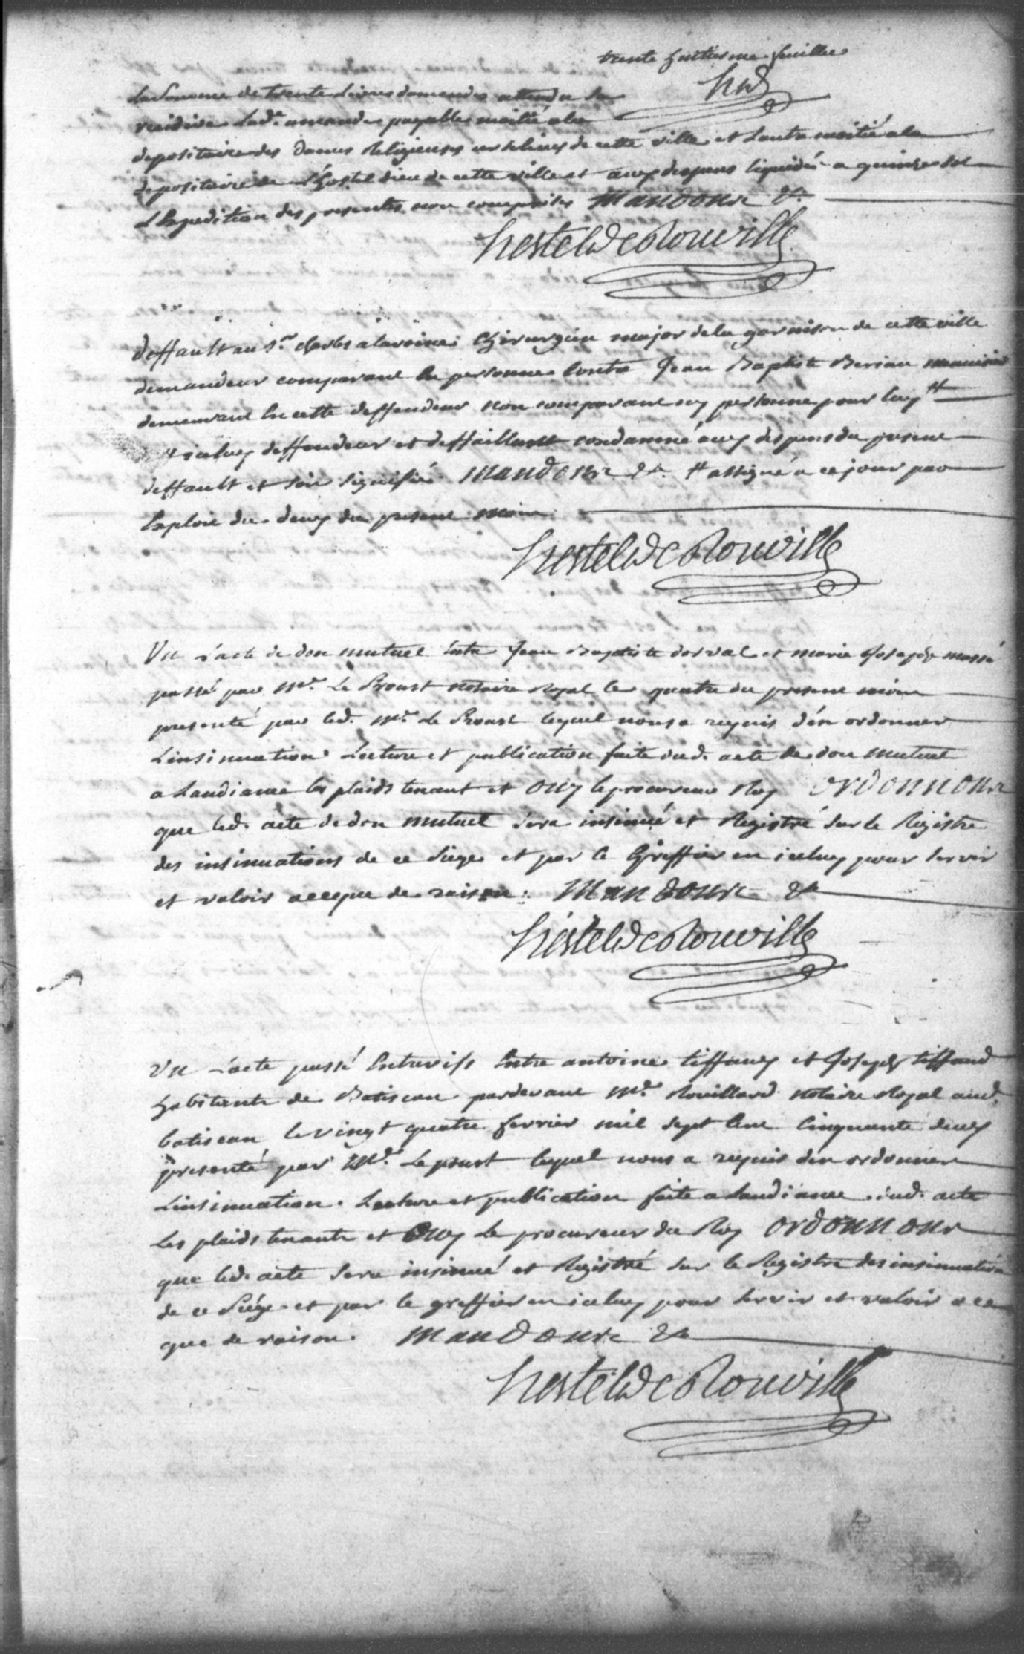 trente huitieme feuillet
hd
La somme de trente Livres damende attendu la
recidive Lad. amande payable moitié a la
depositaire des Dames Religieuses urselines de cette ville et Lautre moitié a la
depositaire de L'hostel dieu de cette ville et aux depens liquidés a quinze sols
L'Expedition des presentes non comprises Mandons &a
hertel de Rouville
deffault au Sr. charles alavoine Chirurgien major de la garnison de cette ville
demandeur comparant En personne Contre Jean Baptiste
demeurant En cette deffendeur non comparant ny personne pour luy #
# iceluy deffendeur et deffaillant condamné aux depens du present
deffault et soit signiffié Mandons &a. # assigné a ce jour par
Exploit du deux du present mois.
hertel de Rouville
Vu L'acte de don mutuel Entre Jean Baptiste dorval et marie Joseph massé
passé par Me. Le Proust notaire Royal le quatre du present mois
presenté par led. Me. Le Proust lequel nous a requis d'en ordonner
L'insinuation Lecture et publication faite dud. acte de don mutuel
a Laudiance les plaids tenant et Ouy le procureur du Roy ordonnons
que led. acte de don mutuel sera insinué et Registré sur le Registre
des insinuations de ce Siege et par le Greffier en iceluy pour servir
et valoir a ce que de raison. Mandons &a
hertel de Rouville
Vu L'acte passé Entrevifs Entre antoine tiffaux et Joseph tiffaud
habitants de Batiscan pardevant Me. Rouillard notaire Royal aud.
batiscan, le vingt quatre fevrier mil sept Cent Cinquante deux
presenté par Me. Le proust lequel nous a requis d'en ordonner
L'insinuation. Lecture et publication faite a Laudiance dud. acte
les plaids tenants et Ouy le procureur du Roy ordonnons
que led. acte sera insinué et Registré sur le Registre des insinuations
de ce Siége et par le greffier en iceluy pour servir et valoir a ce
que de raison. Mandons &a
hertel de Rouville